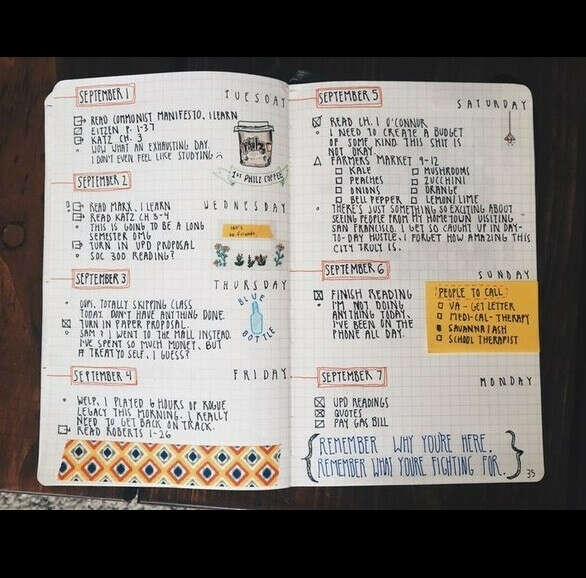 SEPTEMBER 1
TUESDAY
READ COMMUNIST MANIFESTO. ILEARN
EITZEN P. 1-37
KATZ CH. 3
WOW WHAT AN EXHAUSTING DAY.
I DON'T EVEN FEEL LIKE STUDYING
1ST PHILZ COFFEE
SEPTEMBER 2
WEDNESDAY
READ MARX. ILEARN
READ KATZ CH 3-4
THIS IS GOING TO BE A LONG
SEMESTER OMG
TURN IN UPD PROPOSAL
SOC 300 READING?
let's
be friends
SEPTEMBER 3
THURSDAY
OOPS. TOTALLY SKIPPING CLASS
TODAY. DON'T HAVE ANYTHING DONE.
TURN IN PAPER PROPOSAL
9AM? I WENT TO THE MALL INSTEAD.
I'VE SPENT SO MUCH MONEY, BUT
# TREAT YO SELF, I GUESS?
BLUE
BOTTLE
SEPTEMBER 4
FRIDAY
WELP, I PLAYED 6 HOURS OF ROGUE
LEGACY THIS MORNING. I REALLY
NEED TO GET BACK ON TRACK.
READ ROBERTS 1-26
SEPTEMBER 5
SATURDAY
READ CH. 1 O'CONNOR
I NEED TO CREATE A BUDGET
OF SOME KIND THIS SHIT IS
NOT OKAY.
FARMERS MARKET 9-12
KALE MUSHROOMS
PEACHES ZUCCHINI
ONIONS ORANGE
BELL PEPPER LEMON/LIME
THERE'S JUST SOMETHING SO EXCITING ABOUT
SEEING PEOPLE FROM MY HOMETOWN VISITING
SAN FRANCISCO. I GET SO CAUGHT UP IN DAY-
TO-DAY HUSTLE. I FORGET HOW AMAZING THIS
CITY TRULY IS.
SEPTEMBER 6
SUNDAY
FINISH READING
I'M NOT DOING
ANYTHING TODAY.
I'VE BEEN ON THE
PHONE ALL DAY.
PEOPLE TO CALL:
VA - GET LETTER
MEDI-CAL - THERAPY
SAVANNA/ASH
SCHOOL THERAPIST
SEPTEMBER 7
MONDAY
UPD READINGS
QUOTES
PAY GAS BILL
REMEMBER WHY YOU'RE HERE.
REMEMBER WHAT YOU'RE FIGHTING FOR.
35